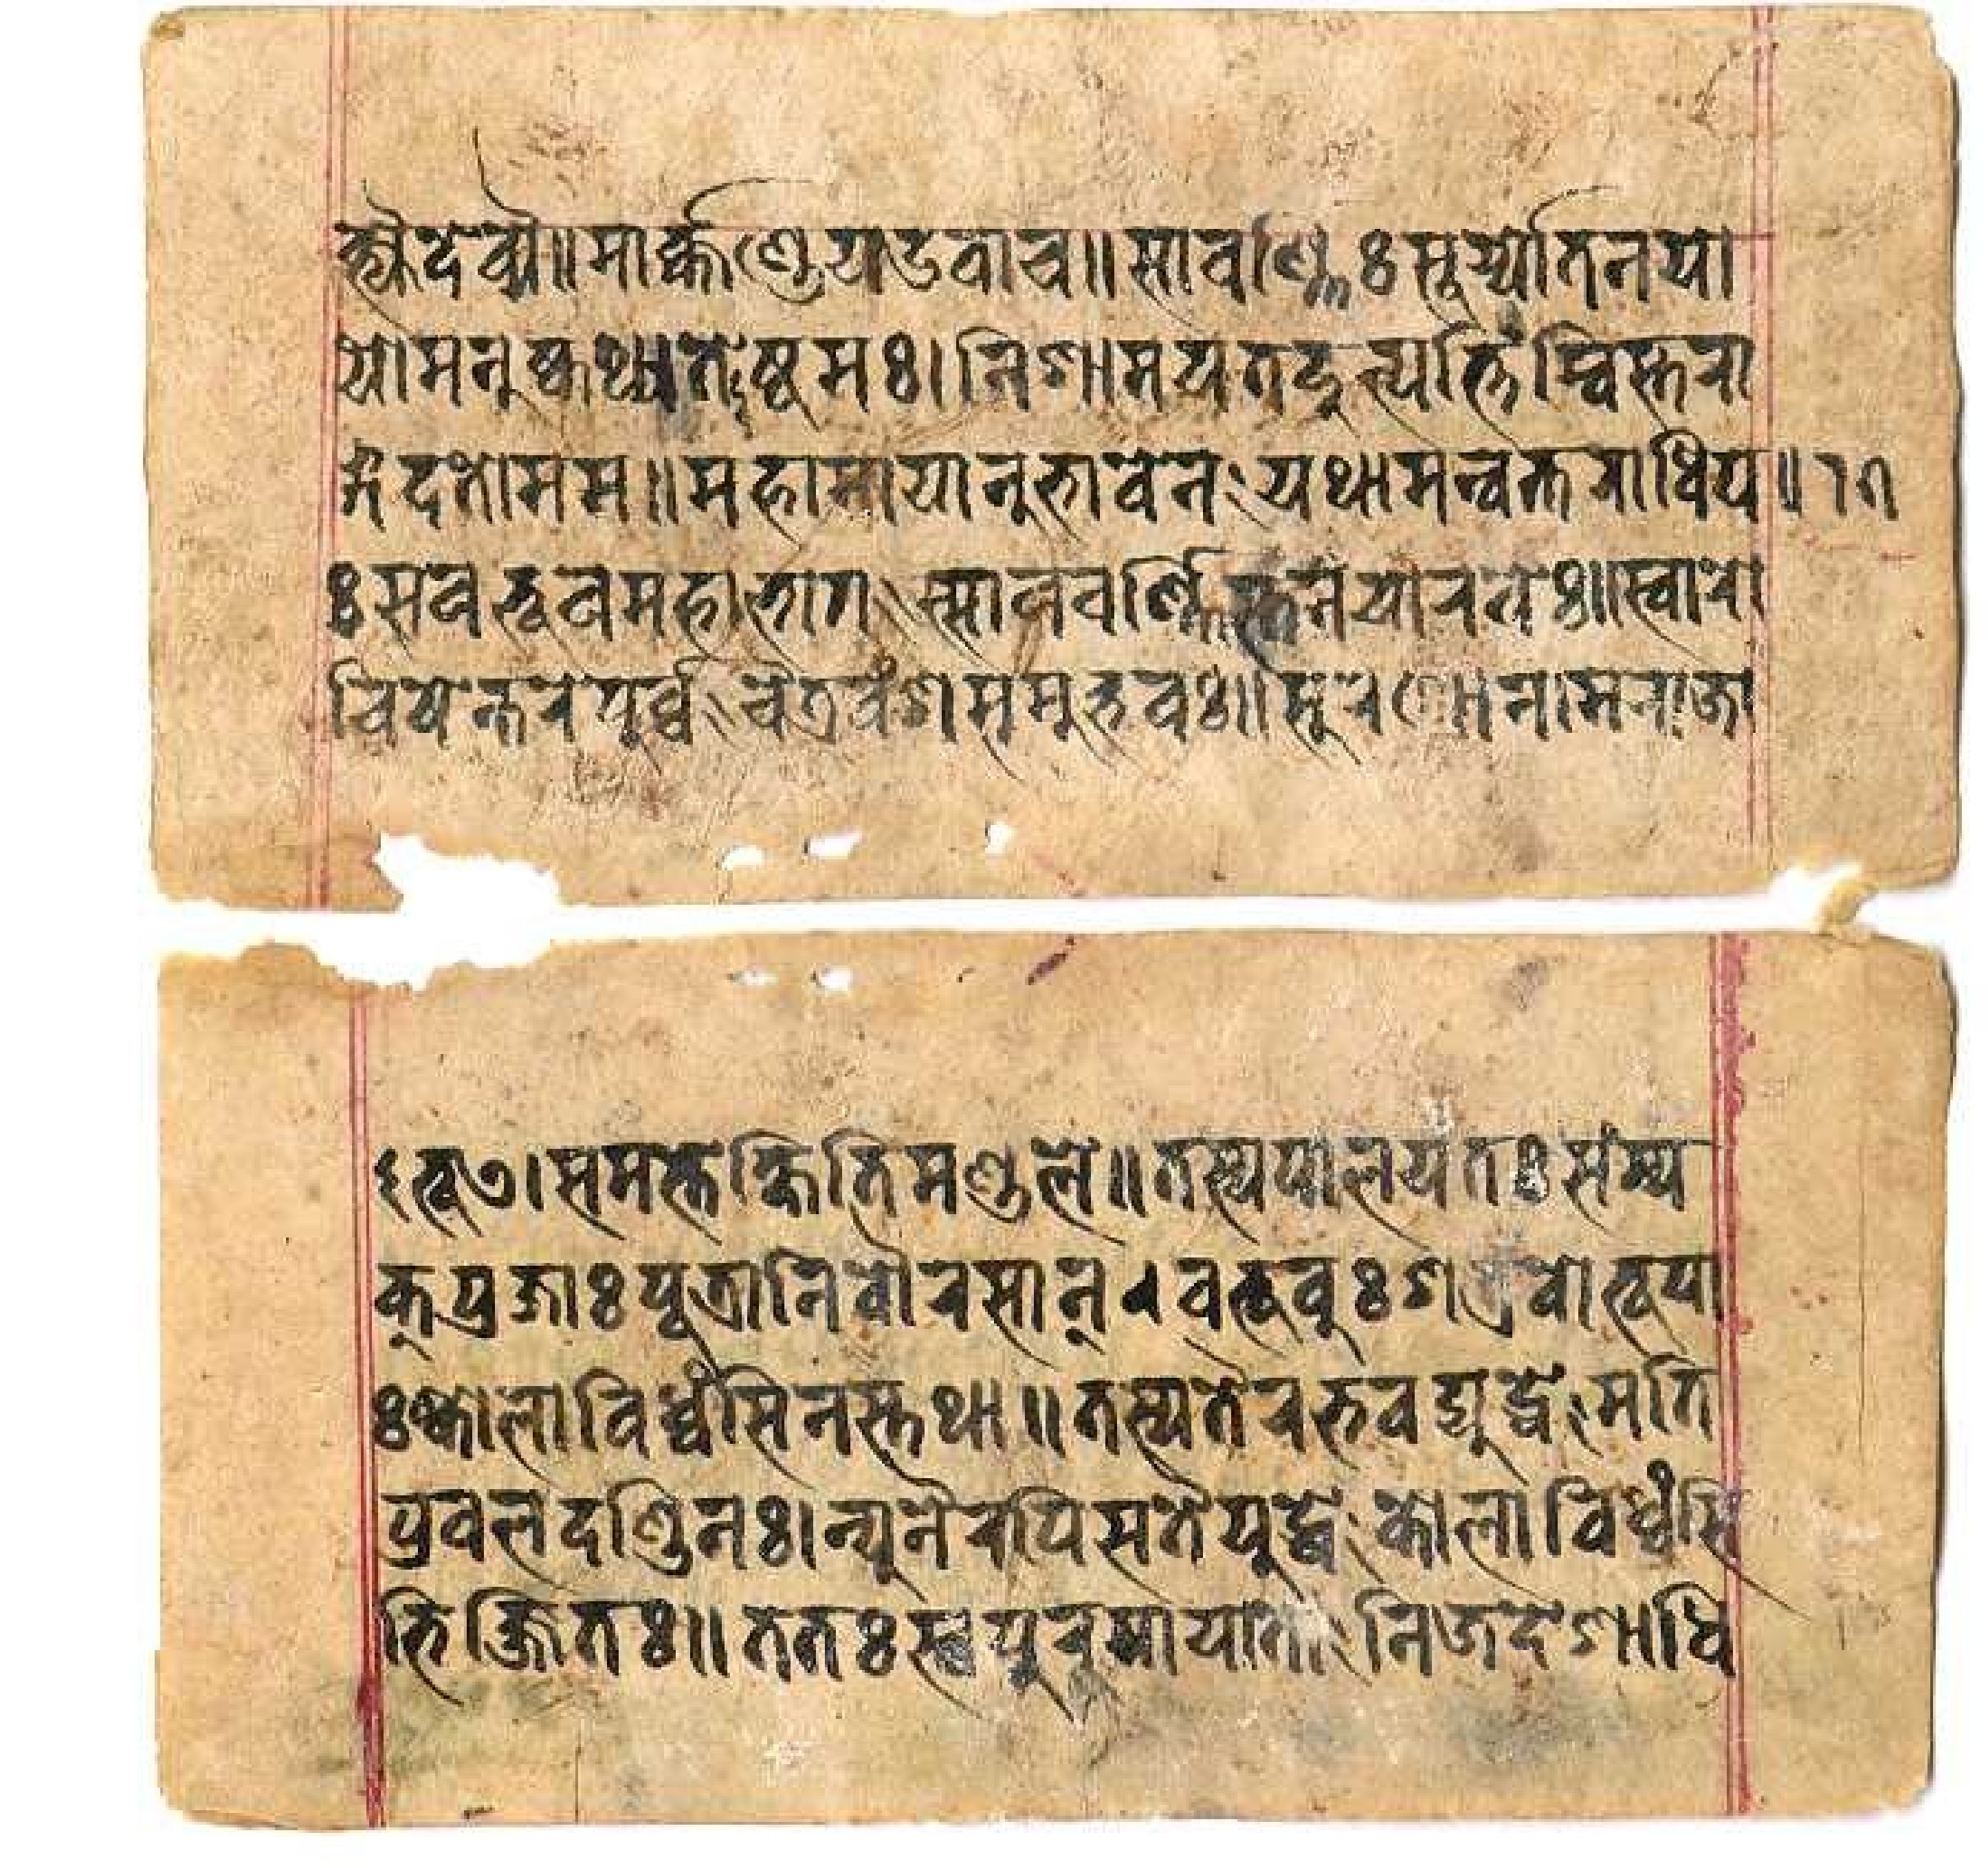 क्ष्यैदेव्यै॥मार्क्कण्डेयउवाच॥सावर्ण्णिःसूर्य्यतनयो
योमनुःकथ्यतेष्टमः।निशामयतदुत्पत्तिंम्विस्तरा
ङ्गदतोमम॥महामायानुभावेन यथामन्वन्तराधिप॥
ःसवभूवमहाभाग सावर्ण्णिस्तनयोरवेः॥स्वारो
चिषेन्तरेपूर्व्वं चैत्रवंशसमुद्भवः॥सुरथोनामराजा
ऽभूत्।समस्तेक्षितिमण्डले॥तस्यपालयतःसंम्य
क्प्रजाःपुत्रानिवौरसान् वभूवुःशत्रवोभूपा
ःकोलाविध्वंसिनस्तथा॥तस्यतैरभवद्युद्धंमति
प्रवलदण्डिनः।न्यूनैरपिसतैयुद्धे कोलाविध्वंसि
भिर्ज्जितः॥ततःस्वपुरमायातो निजदेशाधि